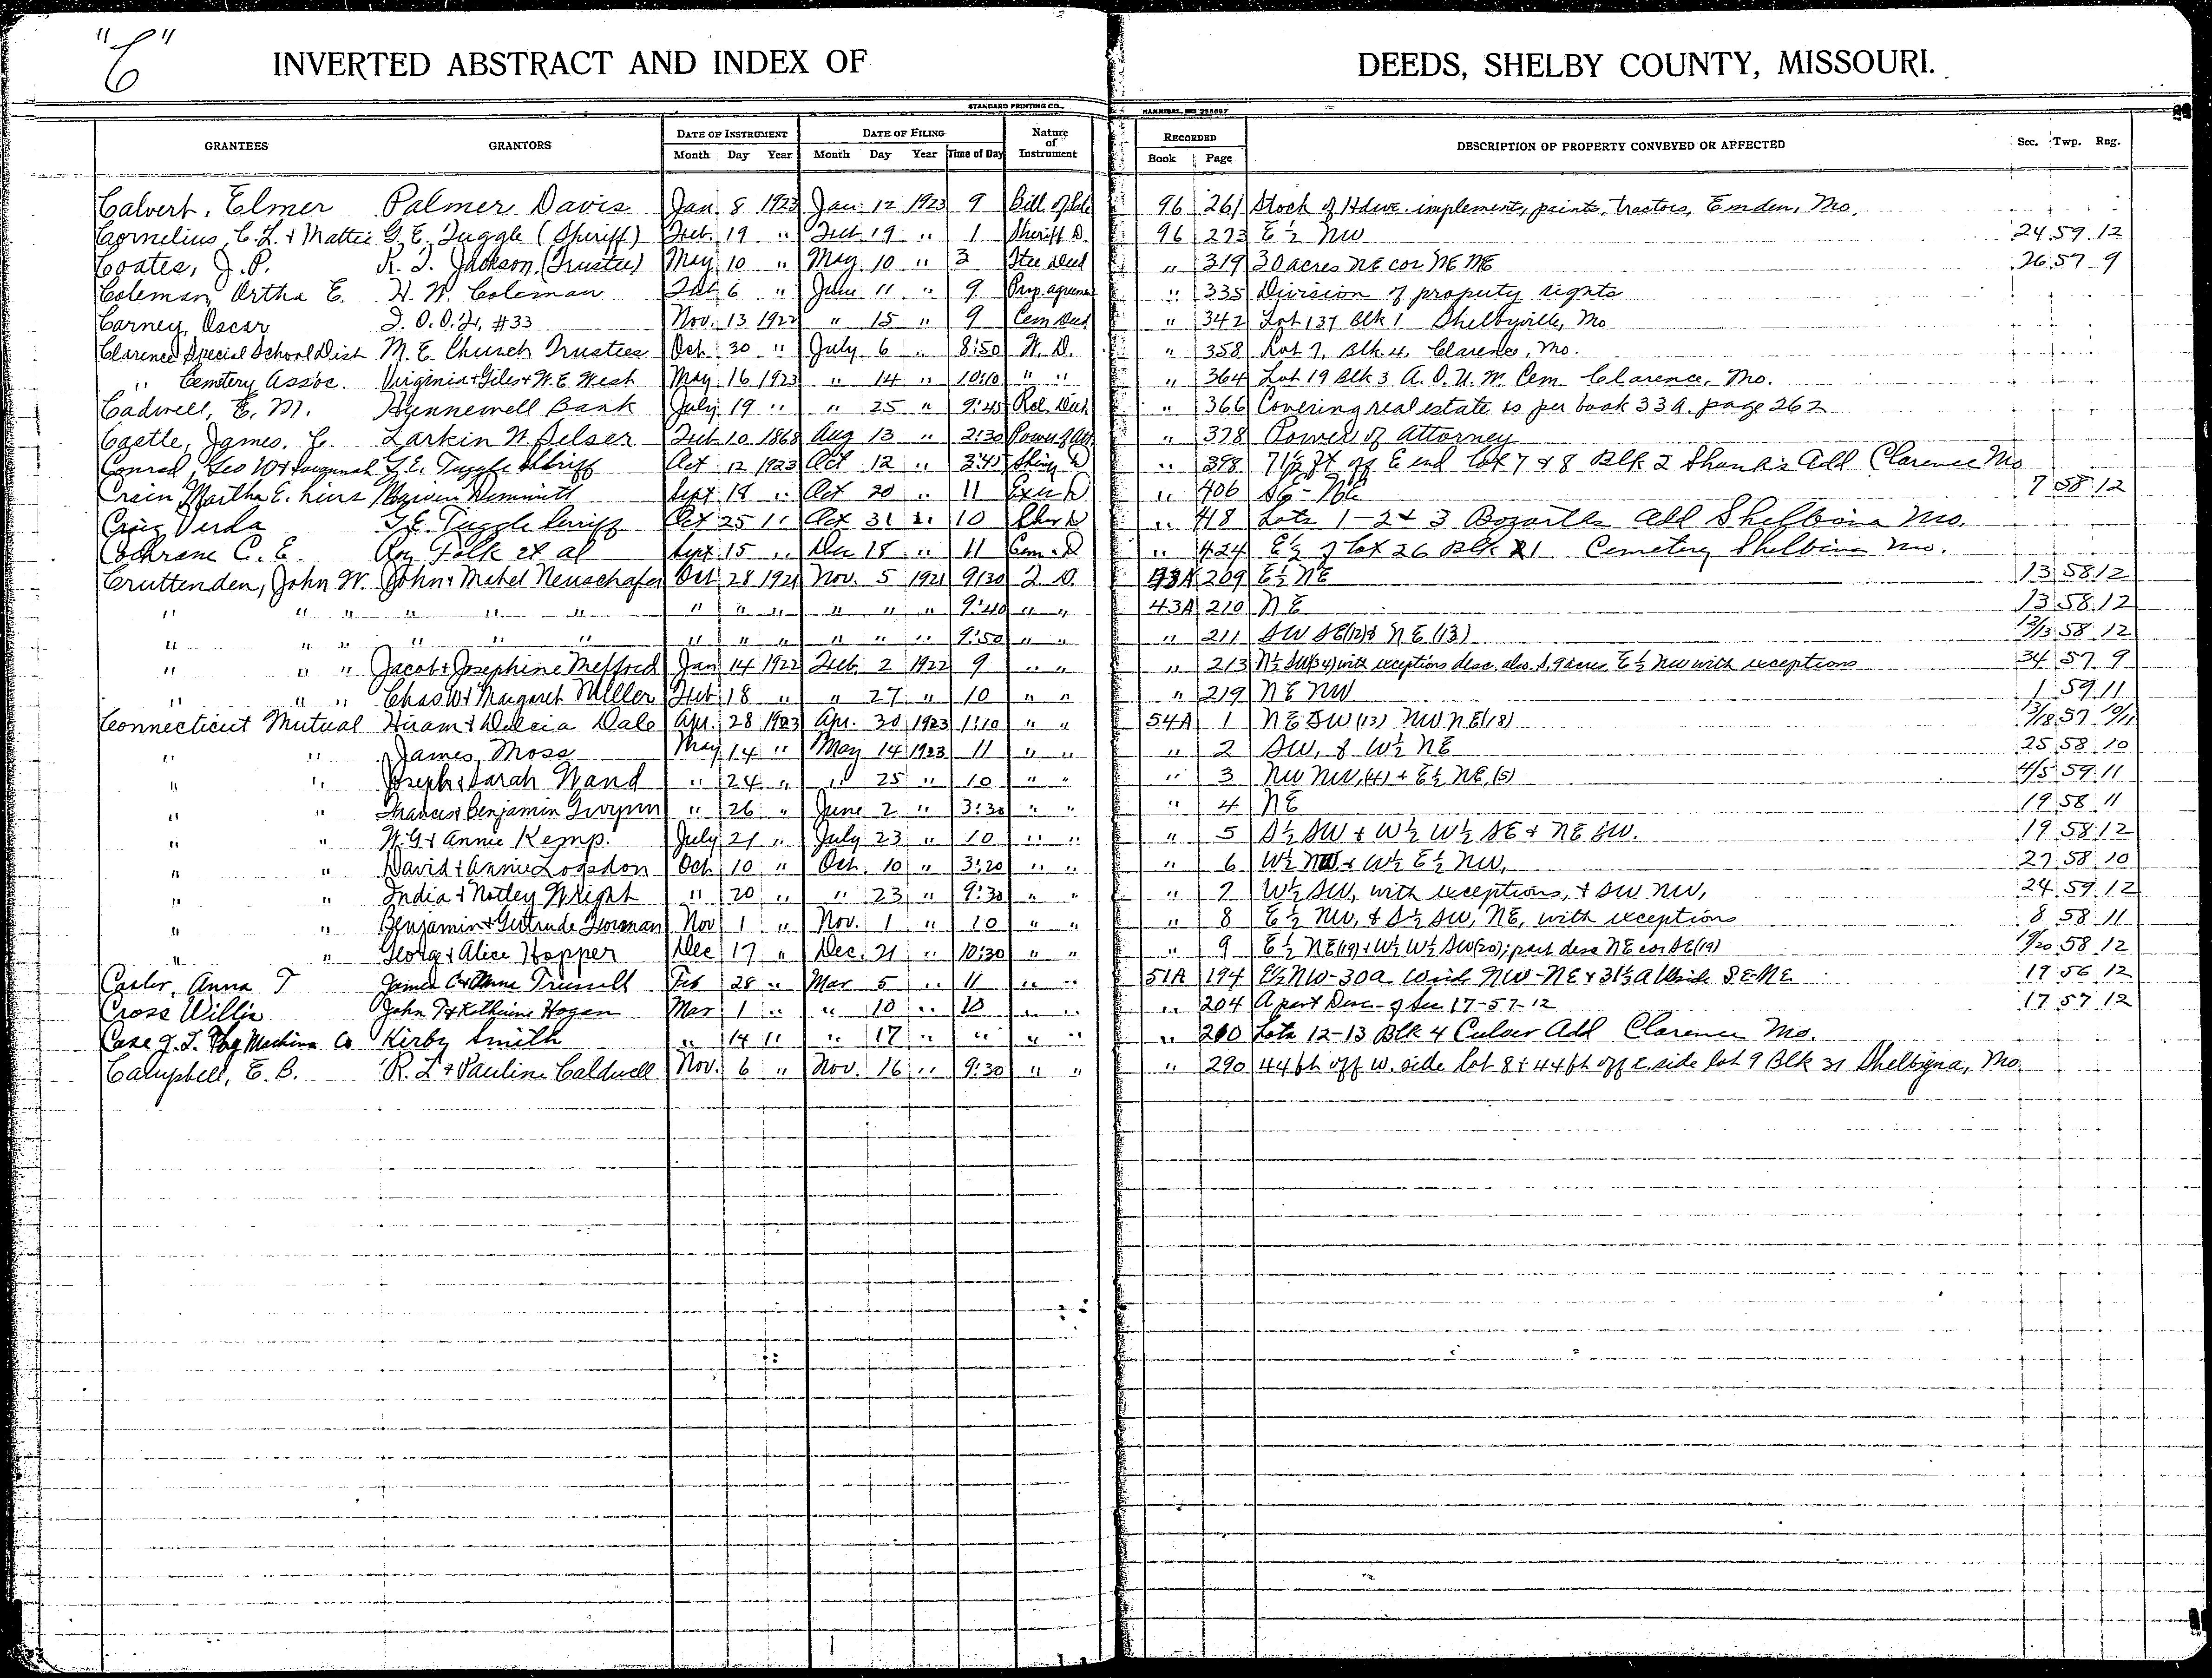 "C"
INVERTED ABSTRACT AND INDEX OF DEEDS, SHELBY COUNTY, MISSOURI.
STANDARD PRINTING CO., HANNIBAL, MO
GRANTEES GRANTORS DATE OF INSTRUMENT DATE OF FILING Nature of Instrument RECORDED DESCRIPTION OF PROPERTY CONVEYED OR AFFECTED Sec. Twp. Rng.
Month Day Year Month Day Year Time of Day Book Page
Calvert, Elmer Palmer Davis Jan 8 1923 Jan. 12 1923 9 Bill of Sale 96 261 Stock of Hdwe. implements, paints, tractors, Emden, Mo.
Cornelius, C. L. & Mattie G. E. Tuggle (Sheriff) Feb. 19 " Feb 19 " 1 Sheriff D. 96 273 E ½ NW 24 59 12
Coates, J. P. R. T. Jackson (Trustee) May 10 " May 10 " 3 Stee Deed " 319 30 acres NE cor NE NE 26 57 9
Coleman, Ortha E. H. W. Coleman Feb 6 " June 11 " 9 Prop. agreemen " 335 Division of property rights
Carney, Oscar I. O. O. F. #33 Nov. 13 1922 " 15 " 9 Cem Deed " 342 Lot 137 Blk 1 Shelbyville, Mo
Clarence Special School Dist M. E. Church Trustees Oct 30 " July 6 " 8:50 W. D. " 358 Lot 7, Blk. 4, Clarence, Mo.
" Cemetery Assoc. Virginia & Giles & W. E. West May 16 1923 " 14 " 10:10 " " " 364 Lot 19 Blk 3 A. O. U. W. Cem Clarence, Mo.
Cadwell, E. M. Hunnewell Bank July 19 " " 25 " 9:45 Rel. Deed " 366 Covering real estate as per book 33A. page 262
Castle, James, C. Larkin N Pelser Feb 10 1868 Aug 13 " 2:30 Power of Att " 378 Power of Attorney
Conrad, Geo W & Savannah G. E. Tuggle Sheriff Oct 12 1923 Oct 12 " 3:45 " 398 71½ ft off E end lot 7 & 8 Blk 2 Shank's Add Clarence Mo
Crain, Martha E. heirs Sept 18 " Oct 20 " 11 " 406 SE - NE 7 58 12
Craig Verda G. E. Tuggle Oct 25 " Oct 31 " 10 Sher D " 418 Lots 1-2 & 3 Bozarth Add Shelbina Mo.
Cochrane C. E. Roy Folk et al Sept 15 " Dec 18 " 11 Cem. D " 424 E½ of lot 26 Blk 21 Cemetery Shelbina Mo.
Cruttenden, John W. John & Mabel Neuschafer Oct 28 1921 Nov. 5 1921 9:30 T. D. 43A 209 E½ NE 13 58 12
" " " " " " " " " " " " 9:40 " " 43A 210 NE 13 58 12
" " " " " " " " " " " " 9:50 " " " 211 SW SE(12) & NE (13) 12/13 58 12
" " " Jacob & Josephine Mefford Jan 14 1922 Feb. 2 1922 9 " " " 213 N½ SW(34) with exceptions desc. also S. 9 acres E ½ NW with exceptions 34 57 9
" " " Chas W & Margaret Miller Feb 18 " " 27 " 10 " " " 219 NE NW 1 59 11
Connecticut Mutual Hiram & Delcia Dale Apr. 28 1923 Apr. 30 1923 1:10 " " 54A 1 NE SW (13) NW NE(18) 13/18 57 10/11
" " James Moss May 14 " May 14 1923 11 " " " 2 SW, & W½ NE 25 58 10
" " Joseph & Sarah Wand " 24 " " 25 " 10 " " " 3 NW NW, (4) & E½ NE, (5) 4/5 59 11
" " Francis & Benjamin Gwynn " 26 " June 2 " 3:30 " " " 4 NE 19 58 11
" " W. G. & Annie Kemp. July 21 " July 23 " 10 " " " 5 S½ SW & W½ W½ SE & NE SW. 19 58 12
" " David & Annie Logsdon Oct 10 " Oct. 10 " 3:20 " " " 6 W½ NW & W½ E½ NW, 27 58 10
" " India & Notley Wright " 20 " " 23 " 9:30 " " " 7 W½ SW, with exceptions, & SW NW, 24 59 12
" " Benjamin & Gertrude Forman Nov 1 " Nov. 1 " 10 " " " 8 E ½ NW, & S½ SW, NE, with exceptions 8 58 11
" " George & Alice Hopper Dec 17 " Dec. 21 " 10:30 " " " 9 E ½ NE(19) & W½ W½ SW(20); part desc NE cor SE(19) 19/20 58 12
Carter, Anna T James C & Anna Trussell Feb 28 " Mar 5 " 11 " " 51A 194 E½ NW - 30a W side NW - NE & 31½ a W side SE-NE 17 56 12
Cross Willis John T & Katherine Hogan Mar 1 " " 10 " 10 " " " 204 A part Desc - of Sec 17-57-12 17 57 12
Case J. I. Thg Machine Co Kirby Smith " 14 " " 17 " " " " " 210 Lots 12-13 Blk 4 Culver Add Clarence Mo.
Campbell, E. B. R. L. & Pauline Caldwell Nov. 6 " Nov. 16 " 9:30 " " " 290 44 ft off W. side lot 8 & 44 ft off E. side lot 9 Blk 31 Shelbyna, Mo